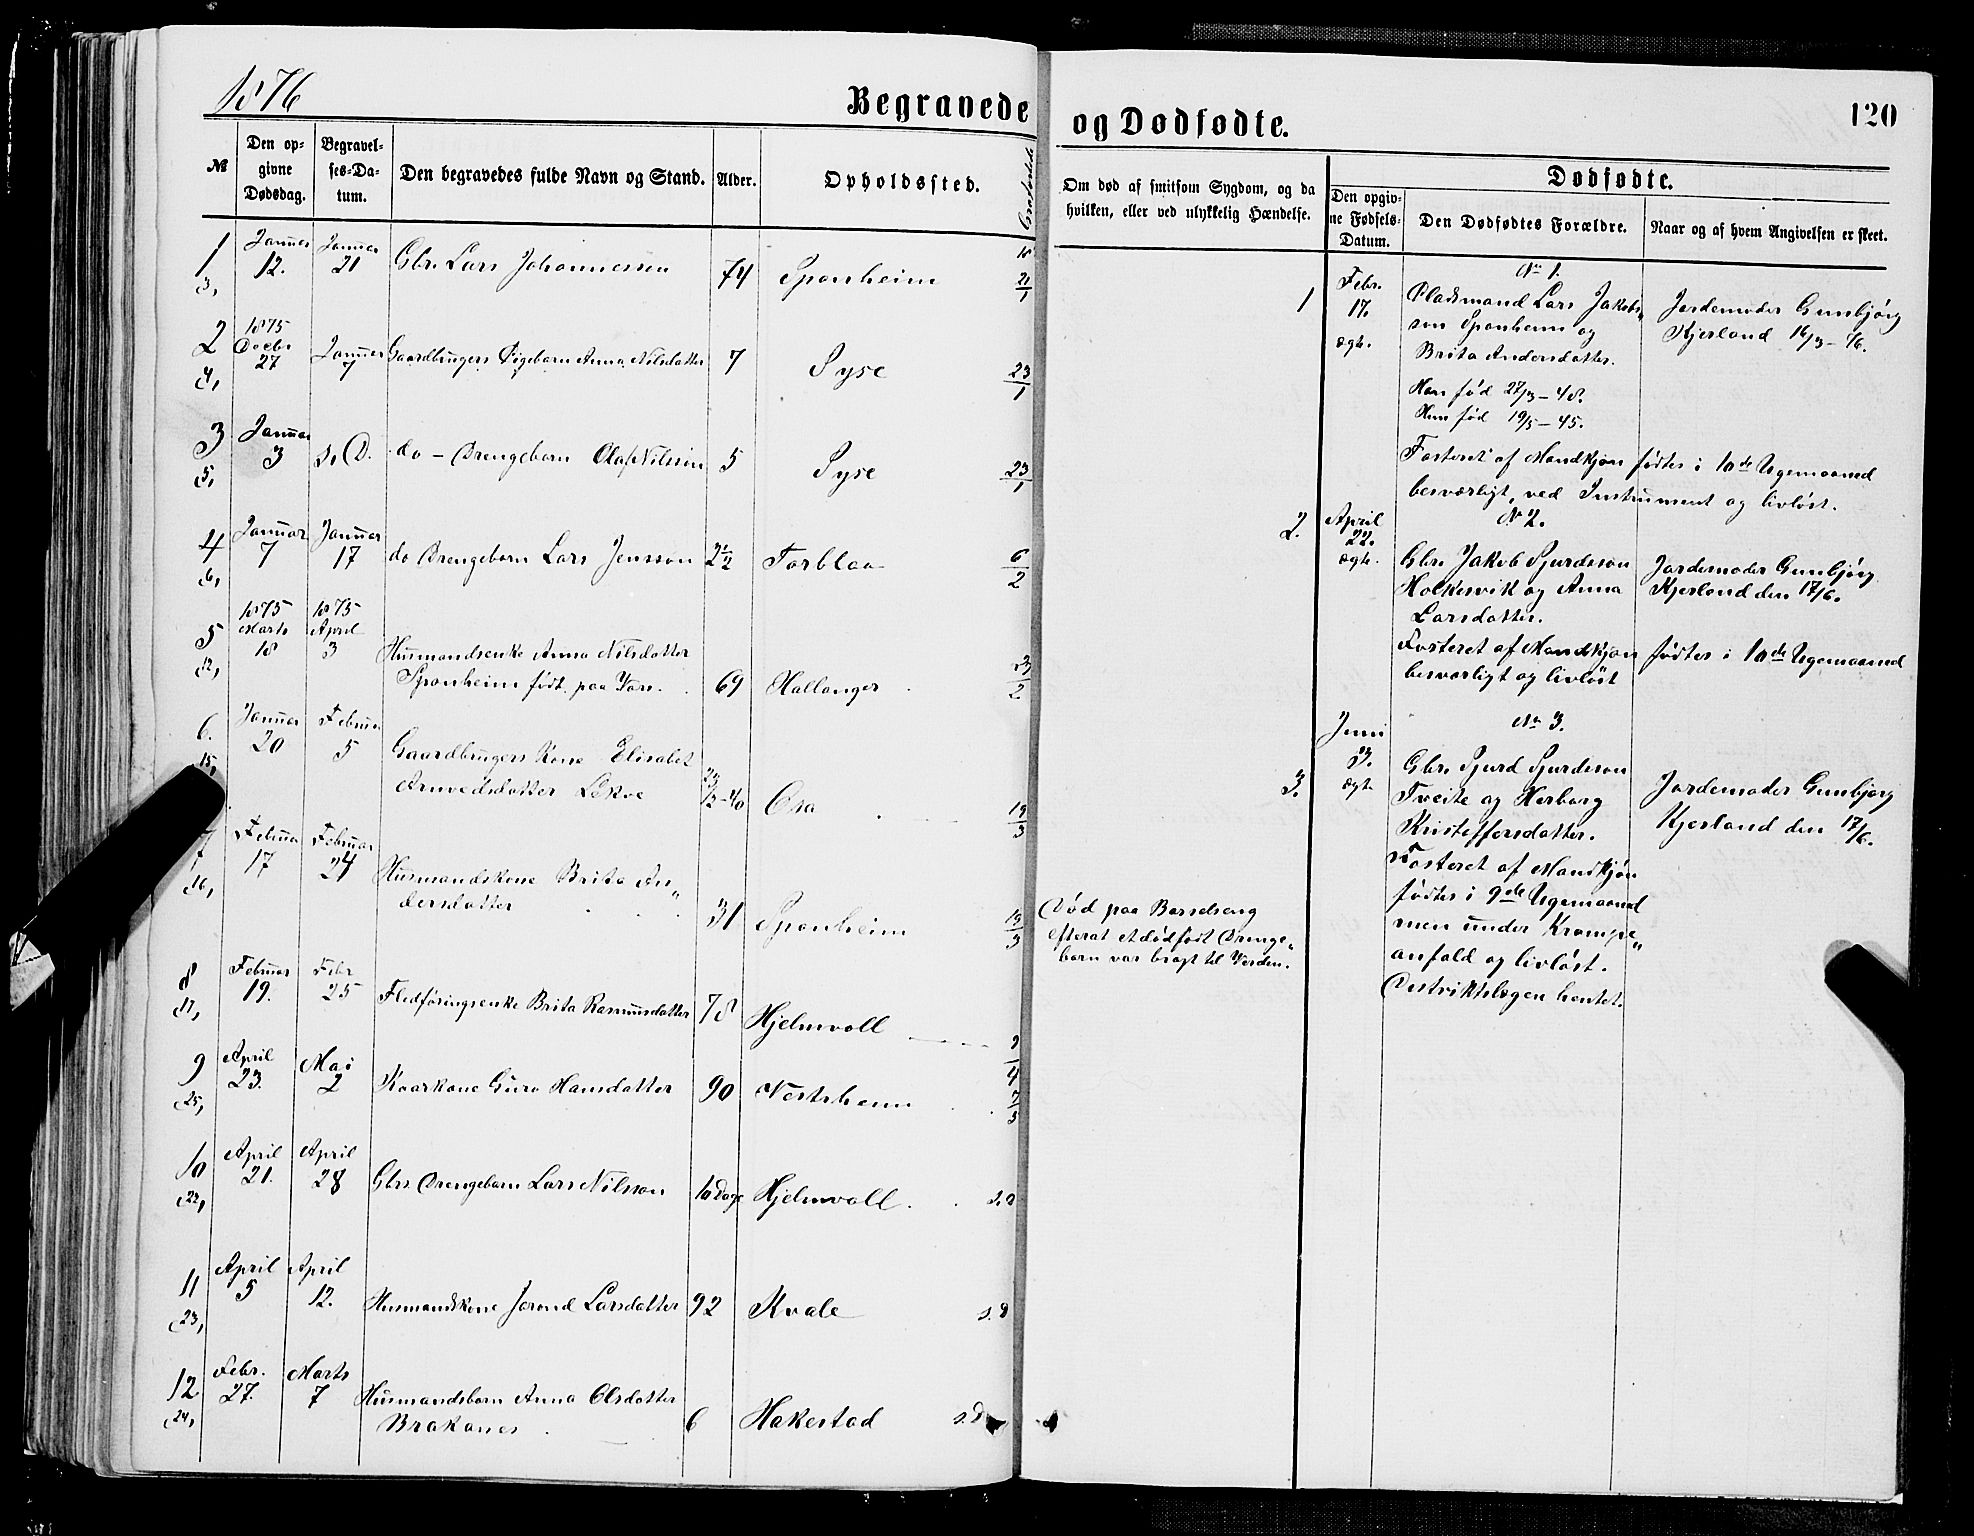 1876
Begravede
№
Den op-
givne
Dødsdag.
Begravel-
ses-Da-
tum.
Den begravedes fulde Navn og Stand.
Alder.
Opholdssted.
1
3,
Januar
12.
Januar
21
Gbr. Lars Johannessen
74
Sponheim
21/1
2
4,
1875
Decbr
27
Januar
7
Gaardbrugers Pigebarn Anna Nilsdatter
7
Syse
23/1
3
5,
Januar
3
s. D.
do - Drengebarn Olaf Nilssøn
5
Syse
23/1
4
6,
Januar
7
Januar
17
do Drengebarn Lars Jensson
2½
Torblaa
6/2
5
12,
1875
Marts
18
1875
April
3
Husmandsenke Anna Nilsdatter
Sponheim født paa Vors.
69
Hallanger
6.
15,
Januar
20
Februar
5
Gaardbrugers Kone Elisabet
Arnvedsdatter Lekve
Osa
19/3
7
16,
Februar
17
Februar
24
Husmandskone Brita An„
dersdatter
31
Sponheim
19/3
8
17,
Februar
19.
Febr
25
Fledføringsenke Brita Rasmusdatter
78
Hjelmvoll
9
25,
April
23.
Mai
2
Kaarkone Guro Hansdatter
90
Nestheim
7/5
10
22,
April
21.
April
28
Gbrs Drengebarn Lars Nilsson
10 Dage
Hjelmvoll.
s. d
11
23,
April
5
April
12.
Husmandskone Jorond Larsdatter
92
Kvale
s. d
12
24,
Febr.
27.
Marts
7
Husmandsbarn Anna Olsdatter
Brakanes
6
Hakestad
s. d
og Dødfødte.
120
Om død af smitsom Sygdom, og da
hvilken, eller ved ulykkelig Hændelse.
Dødfødte.
Den opgiv-
ne Fødsels-
Datum.
Den Dødfødtes Forældre.
Naar og af hvem Angivelsen er skeet.
No 1.
1
Febr.
17.
ægte.
Pladsmand Lars Jakobs„
son Sponheim og
Brita Andersdatter.
Han fød 27/3 - 48.
Hun fød 19/5 - 45.
Jordemoder Gunbjørg
Kjerland 16/3 - 76.
Fosteret af Mandkjøn fødtes i 10de Ugemaaned
besværligt, ved Instrument og livløst.
No 2.
2.
April
22.
ægte.
Gbr. Jakob Sjurdsson
Holkesvik og Anna
Larsdatter.
Jordemoder Gunbjørg
Kjerland den 17/6.
Fosteret af Mandkjøn fødtes i 10de Ugemaaned
besværligt og livløst
No 3.
3.
Juni
3.
ægte
Gbr. Sjurd Sjurdsson
Tveite og Herborg
Kristoffersdatter.
Jordemoder Gunbjørg
Kjerland den 17/6.
Fosteret af Mandkjøn
fødtes i 9de Ugemaaned
men under Krampe„
anfald og livløst.
Distriktslægen hentet.
Død paa Barselseng
efterat et dødfødt Drenge„
barn var bragt til Verden.